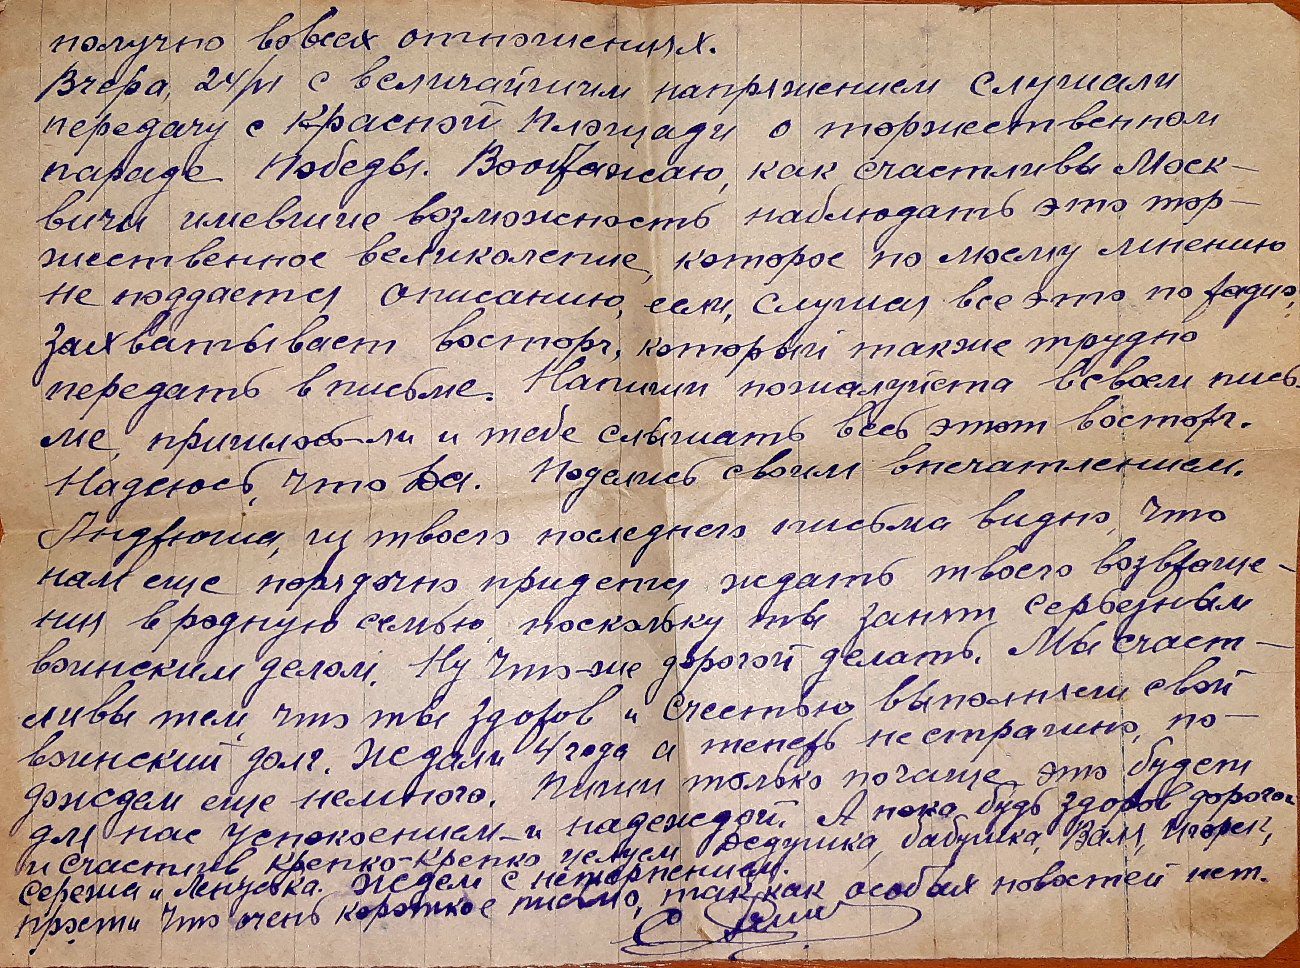 получно вовсех отношениях.
Вчера, 24/VI с величайшим напряжением слушали
передачу с Красной Площади о торжественном
параде Победы. Воображаю, как счастливы Моск-
вичи имевшие возможность наблюдать это тор-
жественное великолепие, которое по моему мнению
не поддается описанию, если, слушая все это по радио,
захватывает восторг, который также трудно
передать в письме. Напиши пожалуйста всвоем пись-
ме, пришлось-ли и тебе слышать весь этот восторг.
Надеюсь, что да. Поделись своим впечатлением.
Андрюша, из твоего последнего письма видно, что
нам еще порядочно придется ждать твоего возвраще-
ния в родную семью, поскольку ты занят серьезным
воинским делом. Ну что-же дорогой делать. Мы счаст-
ливы тем, что ты здоров и счестью выполняеш свой
воинский долг. Ждали 4 года а теперь не страшно, по-
дождем еще немного. Пиши только почаще, это будет
для нас успокоением и надеждой. А пока будь здоров дорогой
и счастлив Крепко-крепко целуем дедушка, бабушка, Валя, Игорек,
Сережа и Ленуська. Ждем с нетерпением.
прости что очень короткое письмо, так-как особых новостей нет.